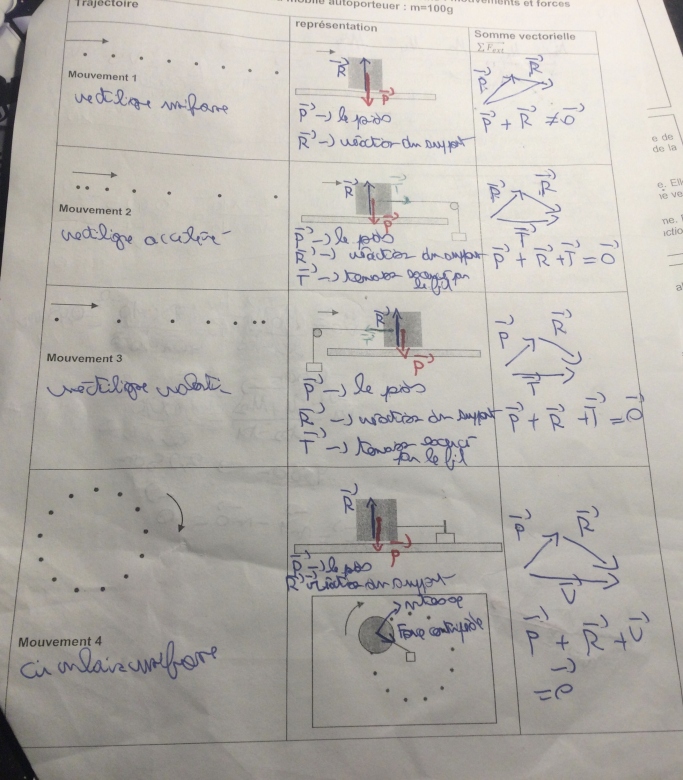 Trajectoire
mobile autoporteuer : m=100g
mouvements et forces
représentation
Somme vectorielle
Mouvement 1
rectiligne uniforme
R
P
P → le poids
R → réaction du support
P R
P + R ≠ 0
Mouvement 2
rectiligne accéléré
R T
P
P → le poids
R → réaction du support
T → tension exercée par
le fil
R R
T
P + R + T = 0
Mouvement 3
rectiligne
R
T
P
P → le poids
R → réaction du support
T → tension
par le fil
P R
T
P + R + T = 0
Mouvement 4
circulaire uniforme
R
P
P → le poids
R réaction du support
Force centripède
P R
V
P + R + V
= 0
e de
de la
e. Ell
ne.